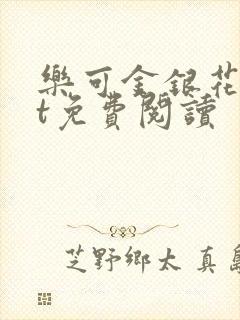 樂可金銀花
t免費閱讀
芝野鄉太真島